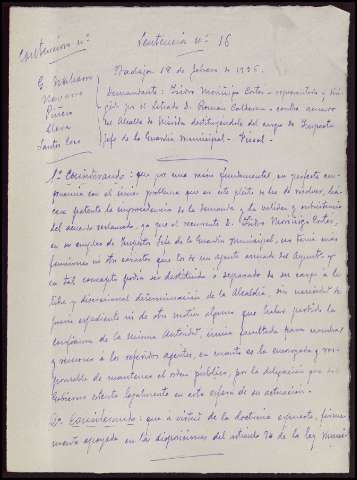 Sentencia nº 16
Contencioso nº
Badajoz 18 de febrero de 1936.
Navarro
Piñero
Llera
Santos Coco
Demandante: Isidro Moriñigo Cortes - representado y
por el Letrado D. Roman Calderon - contra acuerdo
de Alcalde de Mérida destituyendole del cargo de Inspector
Jefe de la Guardia Municipal. - Fiscal.-
1º Considerando: que por una razón fundamental, en perfecta
con el único problema que en este pleito se ha de resolver,
patente la improcedencia de la demanda y la validez y subsistencia
del acuerdo reclamado, ya que el recurrente D. Isidro Moriñigo Cortes,
en su empleo de Inspector Jefe de la Guardia Municipal, no tenía más
funciones ni otro caracter que los de un agente armado del
en tal concepto podía ser destituido o separado de su cargo a la
libre y discrecional determinación de la Alcaldía, sin necesidad de
previo expediente ni de otro motivo alguno que haber perdido la
confianza de la misma Autoridad, única facultada para nombrar
y remover a los referidos agentes, en cuanto es la encargada y res-
ponsable de mantener el orden publico, por la delegación que del
Gobierno ostenta legalmente en esta esfera de su actuación.
2º Considerando: que a virtud de la doctrina expuesta, firme-
mente apoyada en las disposiciones del articulo 74 de la ley Munici-